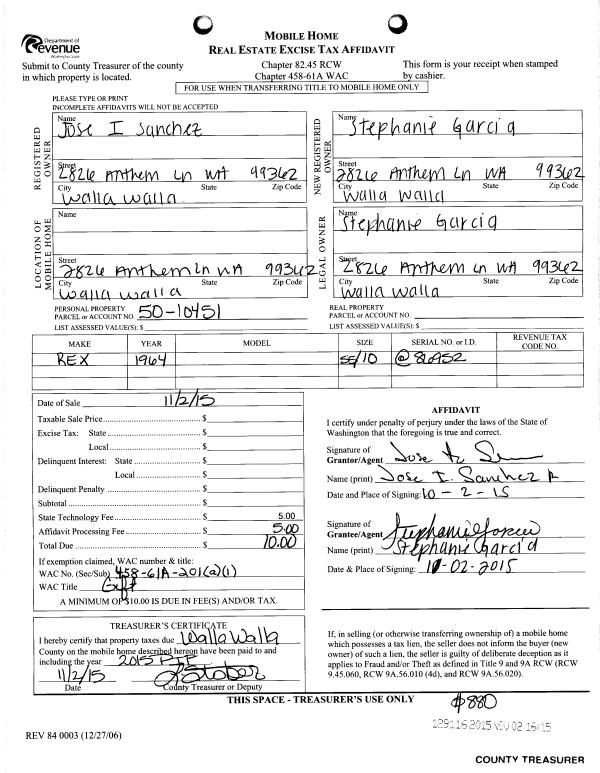 Department of
Revenue
Washington State
MOBILE HOME
REAL ESTATE EXCISE TAX AFFIDAVIT
Submit to County Treasurer of the county
in which property is located.
Chapter 82.45 RCW
Chapter 458-61A WAC
This form is your receipt when stamped
by cashier.
FOR USE WHEN TRANSFERRING TITLE TO MOBILE HOME ONLY
PLEASE TYPE OR PRINT
INCOMPLETE AFFIDAVITS WILL NOT BE ACCEPTED
REGISTERED OWNER
Name
Jose I Sanchez
Street
2826 Anthem Ln WA 99362
City State Zip Code
Walla Walla
NEW REGISTERED OWNER
Name
Stephanie Garcia
Street
2826 Anthem Ln WA 99362
City State Zip Code
Walla Walla
LOCATION OF MOBILE HOME
Name
Street
2826 Anthem Ln WA 99362
City State Zip Code
Walla Walla
LEGAL OWNER
Name
Stephanie Garcia
Street
2826 Anthem Ln WA 99362
City State Zip Code
Walla Walla
PERSONAL PROPERTY
PARCEL or ACCOUNT NO. 50-10451
LIST ASSESSED VALUE(S): $
REAL PROPERTY
PARCEL or ACCOUNT NO.
LIST ASSESSED VALUE(S): $
MAKE YEAR MODEL SIZE SERIAL NO. or I.D. REVENUE TAX CODE NO.
REX 1964 55/10 @86952
Date of Sale 11/2/15
Taxable Sale Price $
Excise Tax: State $
Local $
Delinquent Interest: State $
Local $
Delinquent Penalty $
Subtotal $
State Technology Fee $ 5.00
Affidavit Processing Fee $ 5.00
Total Due $ 10.00
If exemption claimed, WAC number & title:
WAC No. (Sec/Sub) 458-61A-201(a)(1)
WAC Title Gift
A MINIMUM OF $10.00 IS DUE IN FEE(S) AND/OR TAX.
AFFIDAVIT
I certify under penalty of perjury under the laws of the State of
Washington that the foregoing is true and correct.
Signature of
Grantor/Agent
Name (print) Jose I. Sanchez
Date and Place of Signing: 10-2-15
Signature of
Grantee/Agent
Name (print) Stephanie Garcia
Date & Place of Signing: 11-02-2015
TREASURER'S CERTIFICATE
I hereby certify that property taxes due Walla Walla
County on the mobile home described hereon have been paid to and
including the year 2015
11/2/15
Date County Treasurer or Deputy
If, in selling (or otherwise transferring ownership of) a mobile home
which possesses a tax lien, the seller does not inform the buyer (new
owner) of such a lien, the seller is guilty of deliberate deception as it
applies to Fraud and/or Theft as defined in Title 9 and 9A RCW (RCW
9.45.060, RCW 9A.56.010 (4d), and RCW 9A.56.020).
THIS SPACE - TREASURER'S USE ONLY
880
129116 2015 NOV 02 16:15
REV 84 0003 (12/27/06)
COUNTY TREASURER